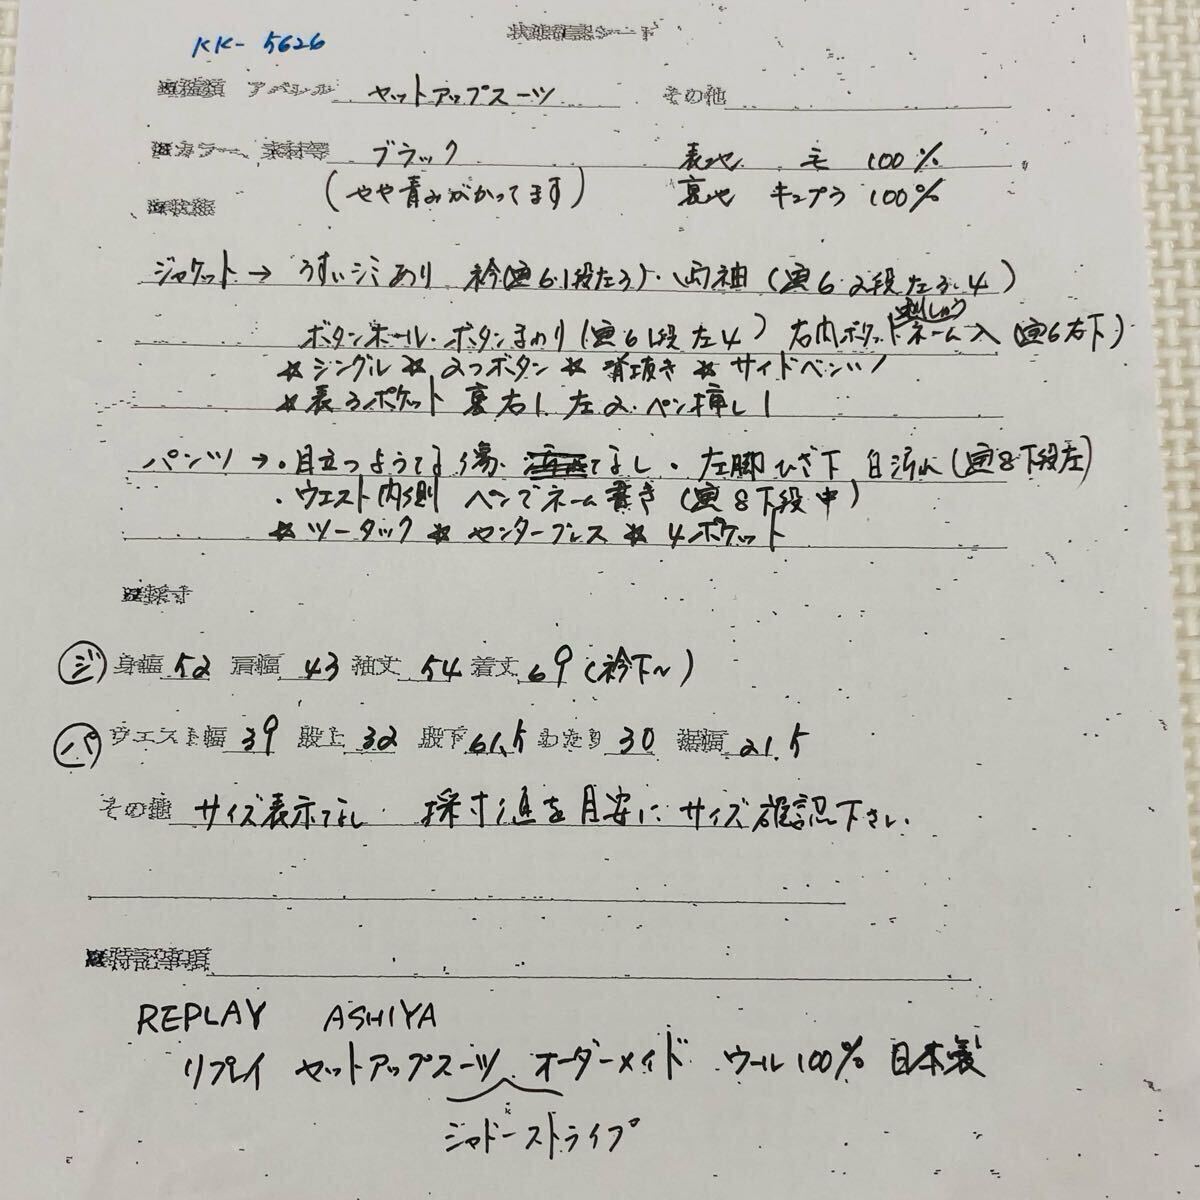 状態確認シート
KK-5626
種類 アパレル セットアップスーツ その他
カラー、素材等 ブラック 表地 毛 100%
(やや青みがかってます) 裏地 キュプラ 100%
状態
ジャケット→ うすいシミあり 衿(画6.1段左3)・両袖(画6.2段左3.4)
刺しゅう
ボタンホール・ボタンまわり(画6 1段 左4) 右内ポケットネーム入(画6右下)
☆シングル ☆2つボタン ☆背抜き ☆サイドベンツ
☆表3ポケット 裏右1 左2.ペン挿し1
パンツ→・目立つような傷、なし・左脚ひざ下 白汚れ(画8下段左)
・ウエスト内側 ペンでネーム書き(画8下段中)
☆ツータック ☆センタープレス ☆4ポケット
採寸
ジ 身幅 52 肩幅 43 袖丈 54 着丈 69(衿下~)
パ ウエスト幅 39 股上 32 股下 61.5 わたり 30 裾幅 21.5
その他 サイズ表示なし 採寸値を目安にサイズ確認下さい.
特記事項
REPLAY ASHIYA
リプレイ セットアップスーツ オーダーメイド ウール100% 日本製
シャドーストライプ